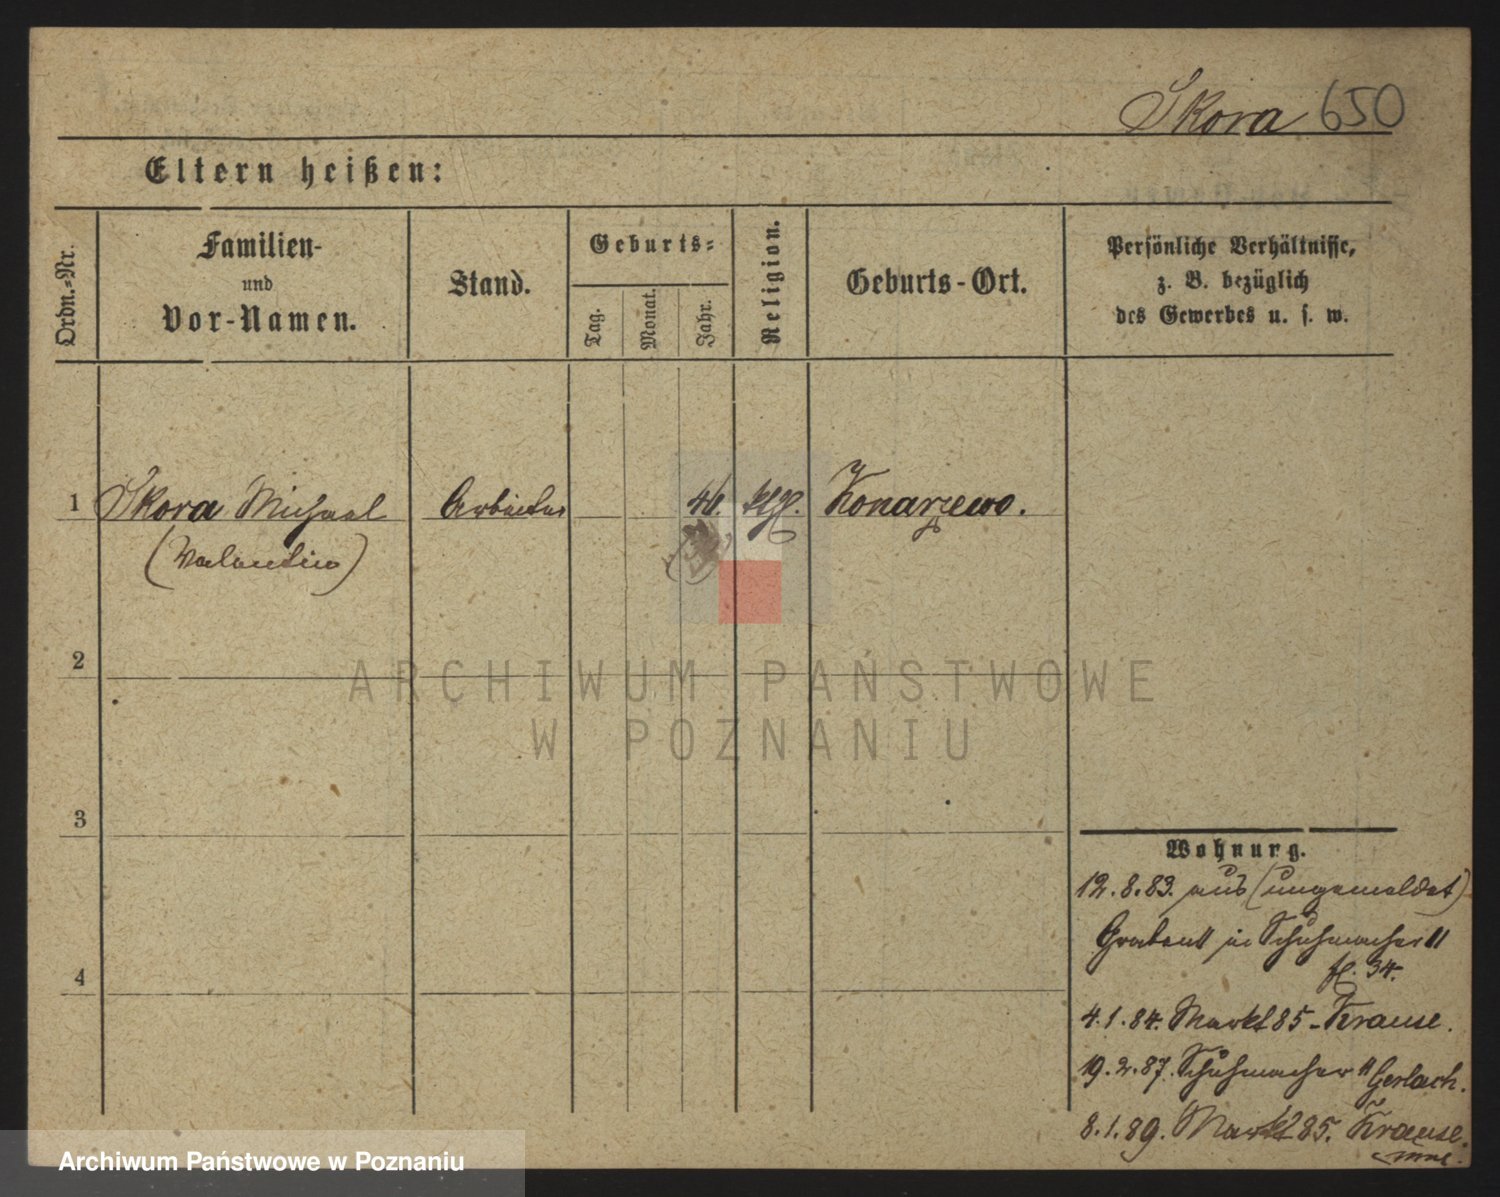 Skora 650
Eltern heißen:
Ordn.-Nr.
Familien-
und
Vor-Namen.
Stand.
Geburts-
Tag.
Monat.
Jahr.
Religion.
Geburts-Ort.
Persönliche Verhältnisse,
z. B. bezüglich
des Gewerbes u. s. w.
1 Skora Michael Arbeiter 46. kthl. Konarzewo.
(Valentin)
2
3
4
Wohnung.
12.8.83. aus (ungemeldet)
Graben 11 in Schuhmacher 11
34.
4.1.84. Markt 85 - Krause.
19.2.87. Schuhmacher 11 Gerlach.
8.1.89. Markt 85. Krause.
ARCHIWUM PAŃSTWOWE
W POZNANIU
Archiwum Państwowe w Poznaniu